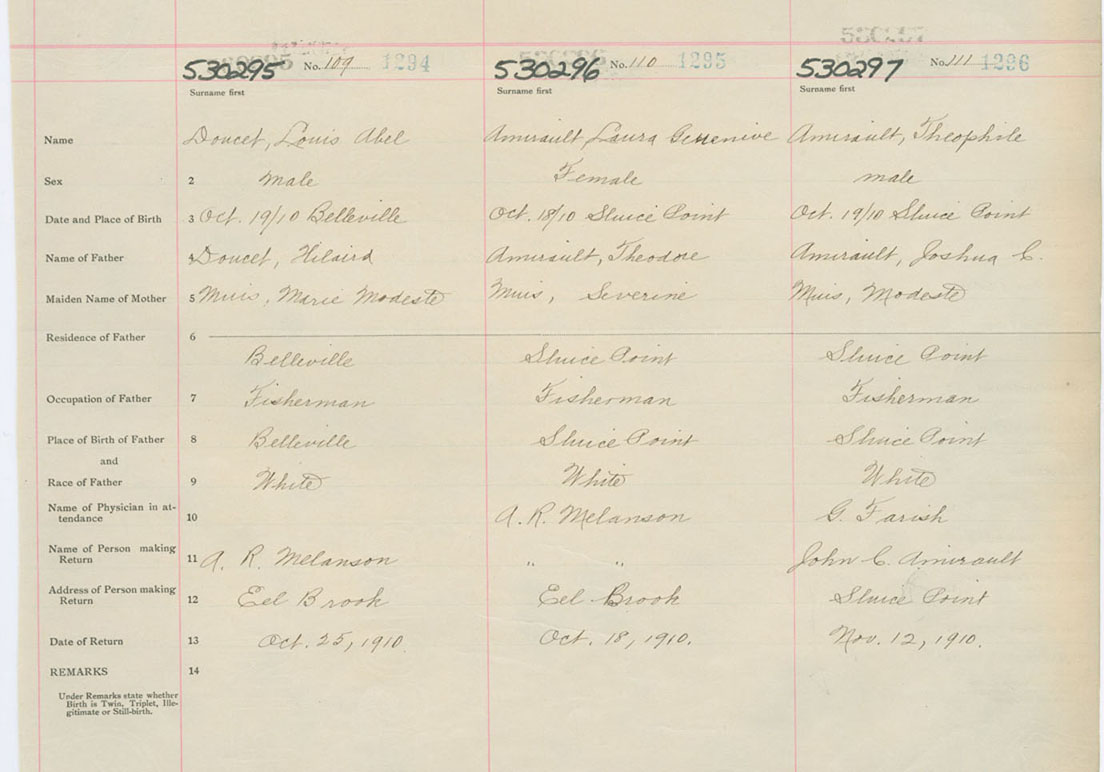 530295 No. 109 1294 530296 No. 110 1295 530297 No. 111 1296
Surname first Surname first Surname first
Name Doucet, Louis Abel Amirault, Laura Amirault, Theophile
Sex 2 male Female male
Date and Place of Birth 3 Oct. 19/10 Belleville Oct. 18/10 Sluice Point Oct. 19/10 Sluice Point
Name of Father Doucet, Hilaird Amirault, Theodore Amirault, Joshua C.
Maiden Name of Mother 5 Muis, Marie Modeste Muis, Severine Muis, Modeste
Residence of Father 6
Belleville Sluice Point Sluice Point
Occupation of Father 7 Fisherman Fisherman Fisherman
Place of Birth of Father 8 Belleville Sluice Point Sluice Point
and
Race of Father 9 White White White
Name of Physician in at-
tendance 10 A. R. Melanson G. Farish
Name of Person making
Return 11 A. R. Melanson " " John C. Amirault
Address of Person making
Return 12 Eel Brook Eel Brook Sluice Point
Date of Return 13 Oct. 25, 1910. Oct. 18, 1910. Nov. 12, 1910.
REMARKS 14
Under Remarks state whether
Birth is Twin, Triplet, Ille-
gitimate or Still-birth.